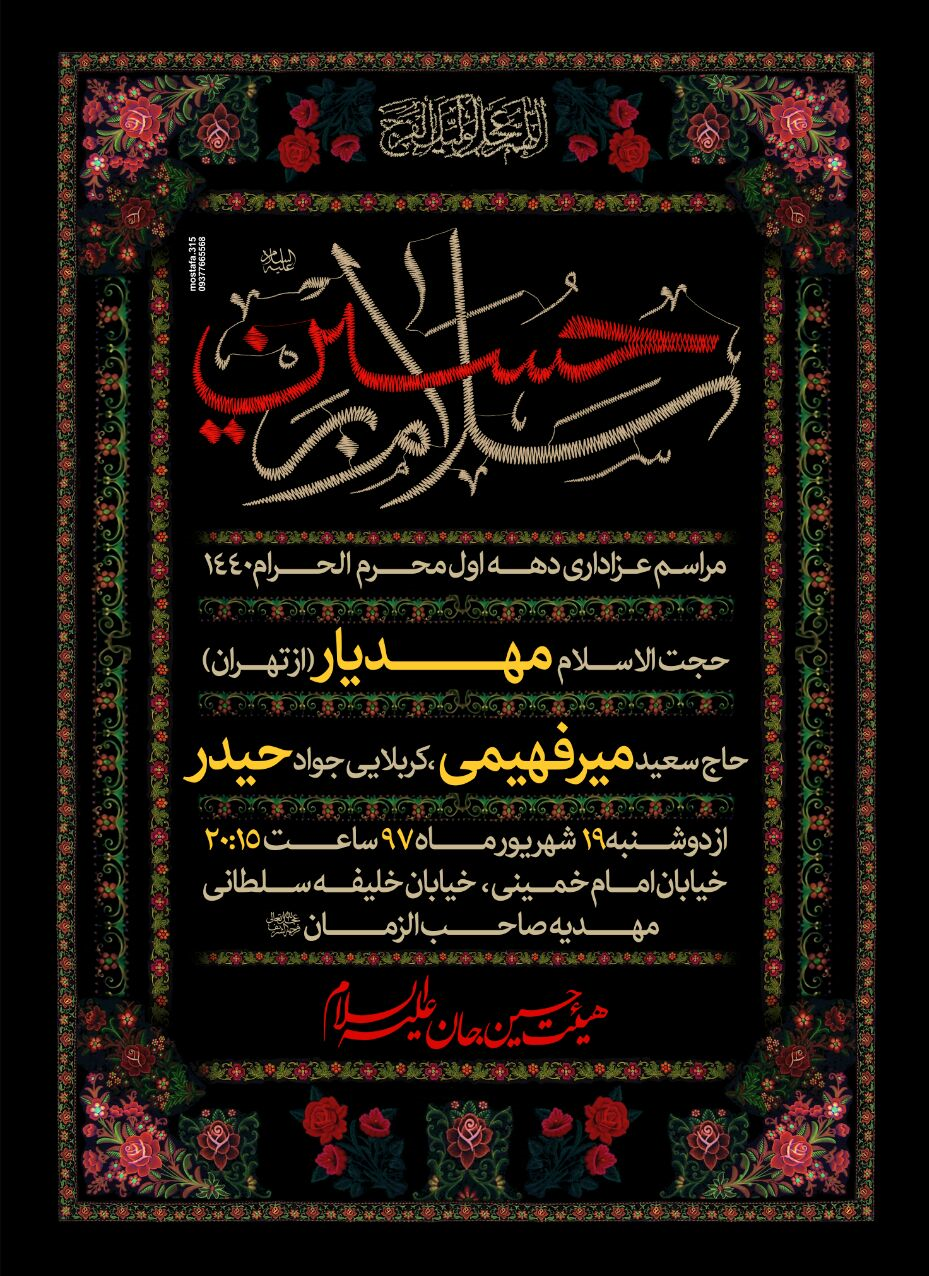 اللهم عجل لولیک الفرج
mostafa.315
09377665568
علیه السلام
سلام بر حسین
مراسم عزاداری دهه اول محرم الحرام ۱۴۴۰
حجت الاسلام مهدیار (از تهران)
حاج سعید میرفهیمی ، کربلایی جواد حیدر
از دوشنبه ۱۹ شهریور ماه ۹۷ ساعت ۲۰:۱۵
خیابان امام خمینی ، خیابان خلیفه سلطانی
مهدیه صاحب الزمان
هیئت حسین جان علیه السلام